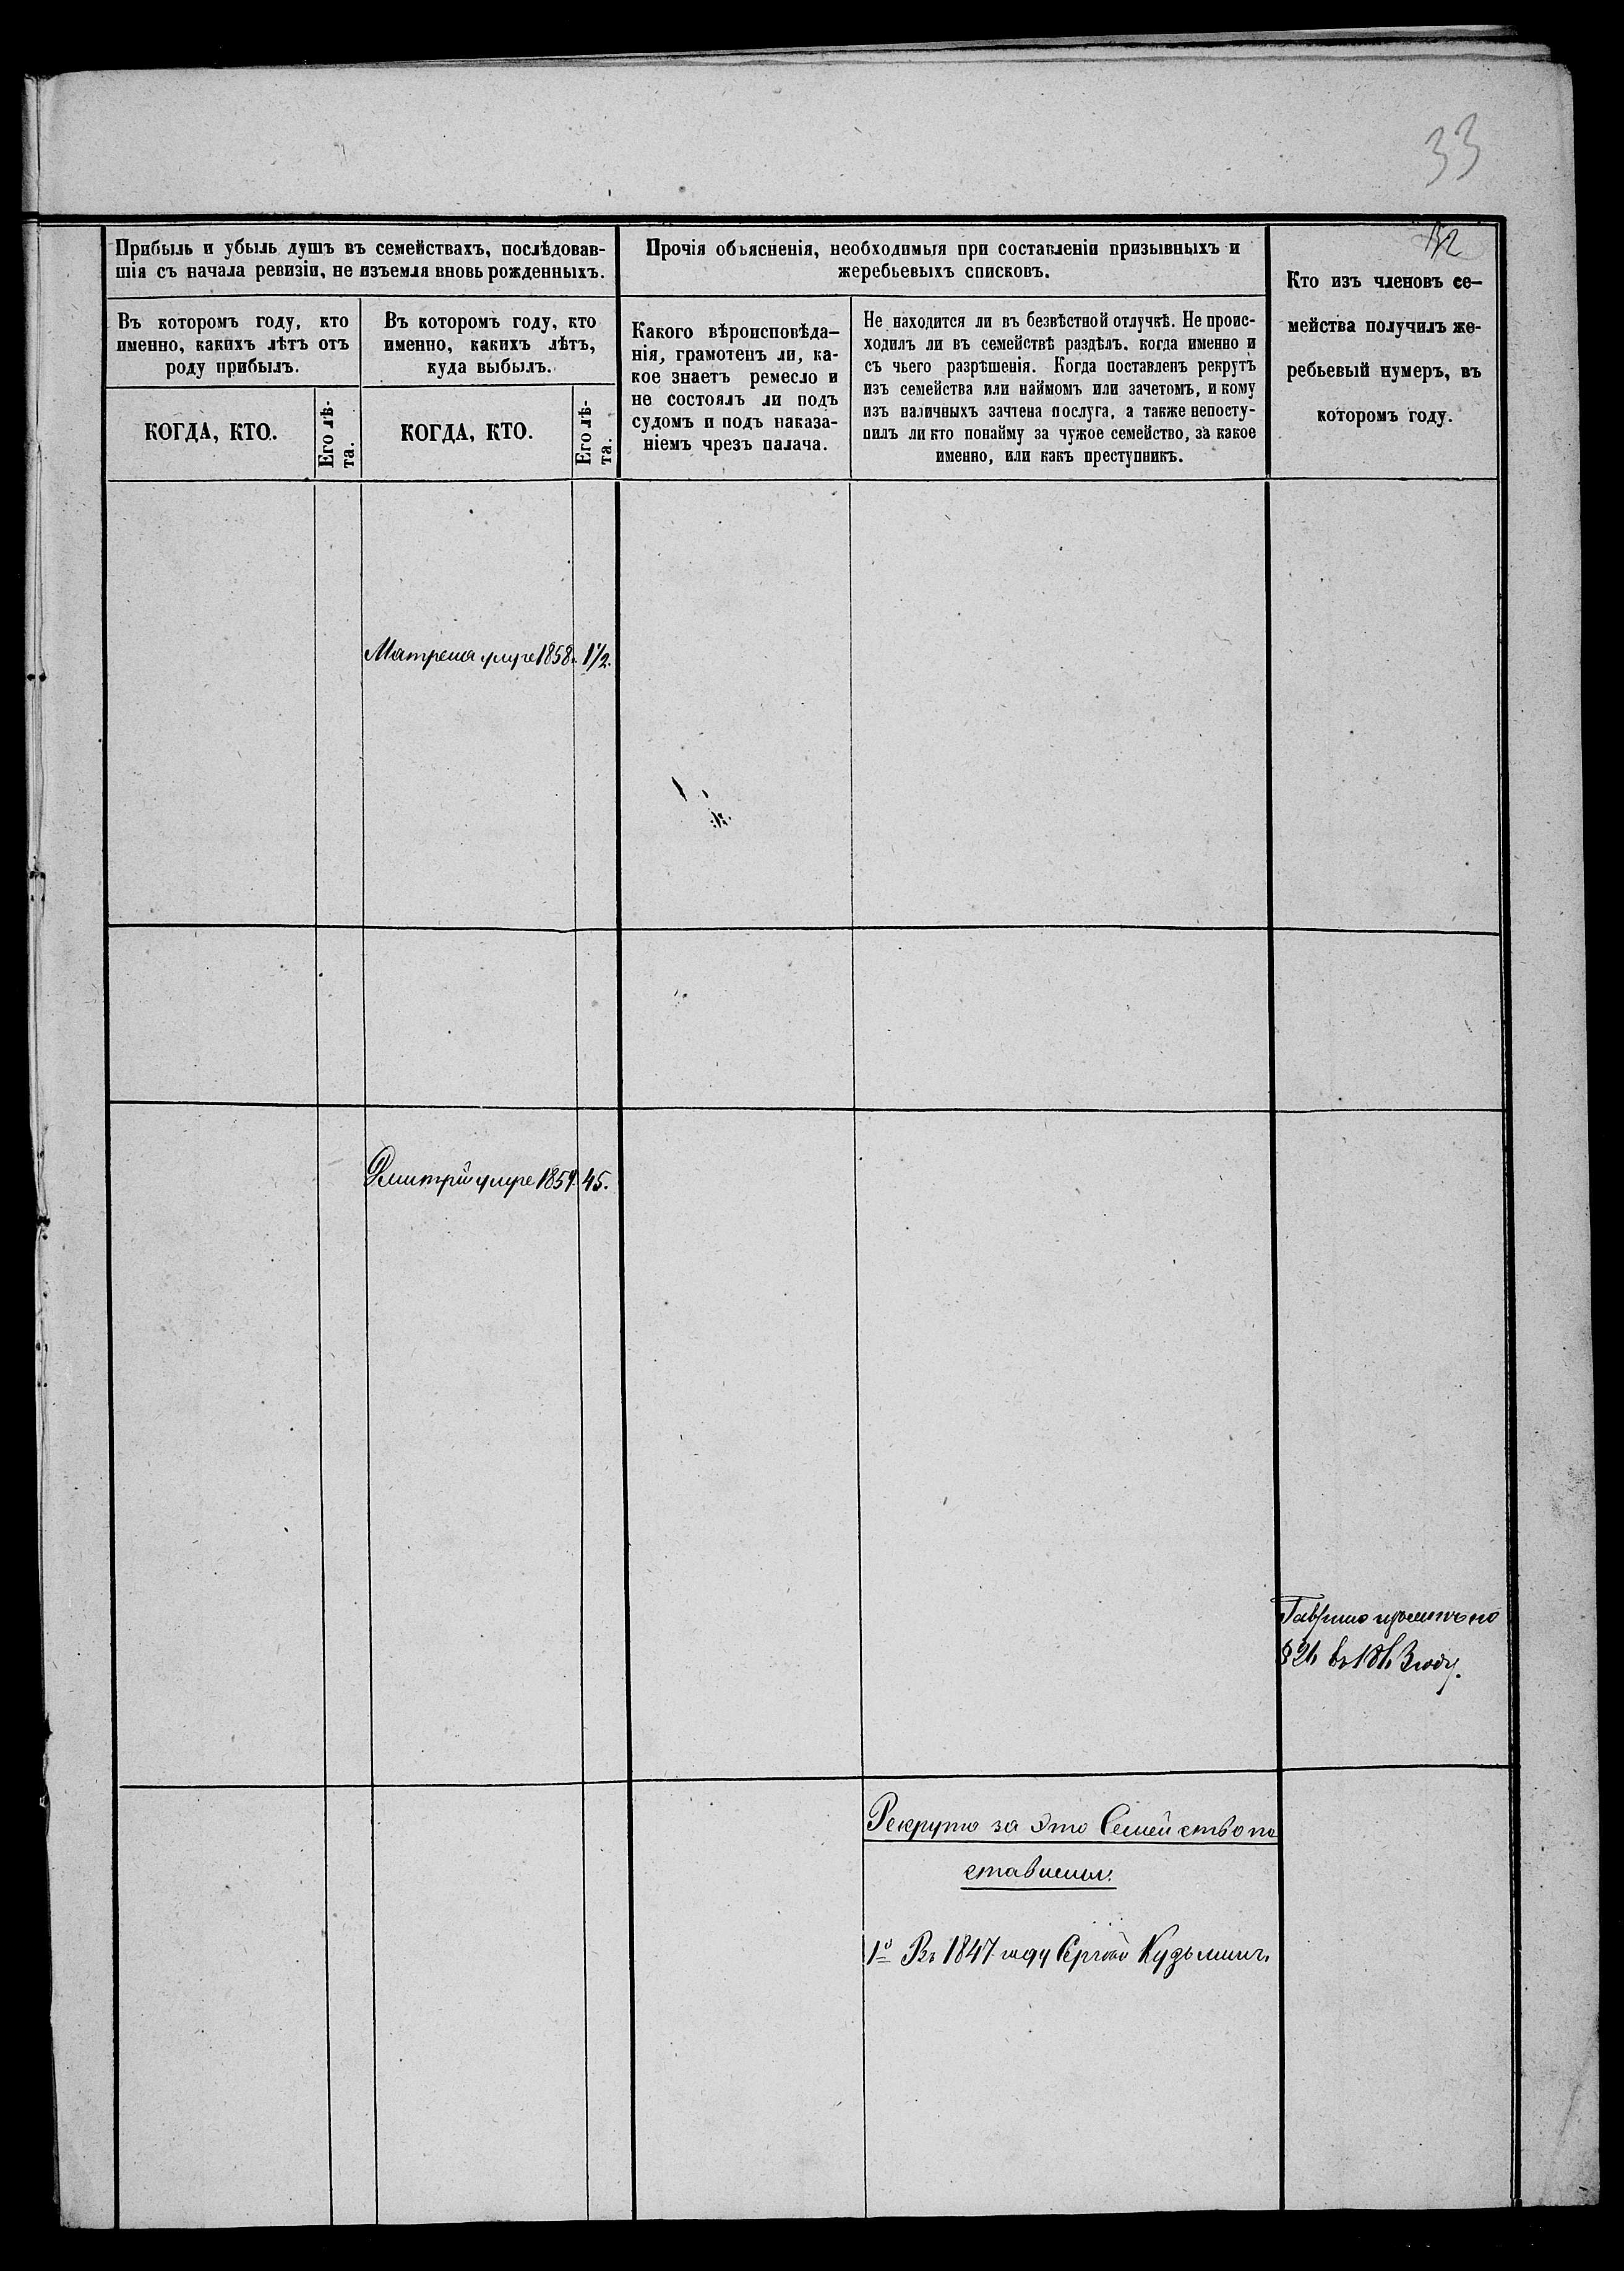 33
Прибыль и убыль душъ въ семействахъ, послѣдовав-
шія съ начала ревизіи, не изъемля вновь рожденныхъ.
Въ которомъ году, кто
именно, какихъ лѣтъ отъ
роду прибылъ.
КОГДА, КТО.
Его лѣ-
та.
Въ которомъ году, кто
именно, какихъ лѣтъ,
куда выбылъ.
КОГДА, КТО.
Его лѣ-
та.
Прочія объясненія, необходимыя при составленіи призывныхъ и
жеребьевыхъ списковъ.
Какого вѣроисповѣда-
нія, грамотенъ ли, ка-
кое знаетъ ремесло и
не состоялъ ли подъ
судомъ и подъ наказа-
ніемъ чрезъ палача.
Не находится ли въ безвѣстной отлучкѣ. Не проис-
ходилъ ли въ семействѣ раздѣлъ. когда именно и
съ чьего разрѣшенія. Когда поставленъ рекрутъ
изъ семейства или наймомъ или зачетомъ, и кому
изъ наличныхъ зачтена послуга, а также непосту-
пилъ ли кто понайму за чужое семейство, за какое
именно, или какъ преступникъ.
Кто изъ членовъ се-
мейства получилъ же-
ребьевый нумеръ, въ
которомъ году.
Матрена умре 1858. 1½.
Дмитрій умре 1859. 45.
§ 21 въ 1863 году.
Рекрутъ за это Семейство по
ставлены:
1º Въ 1847 году Сергѣй Кудьминъ